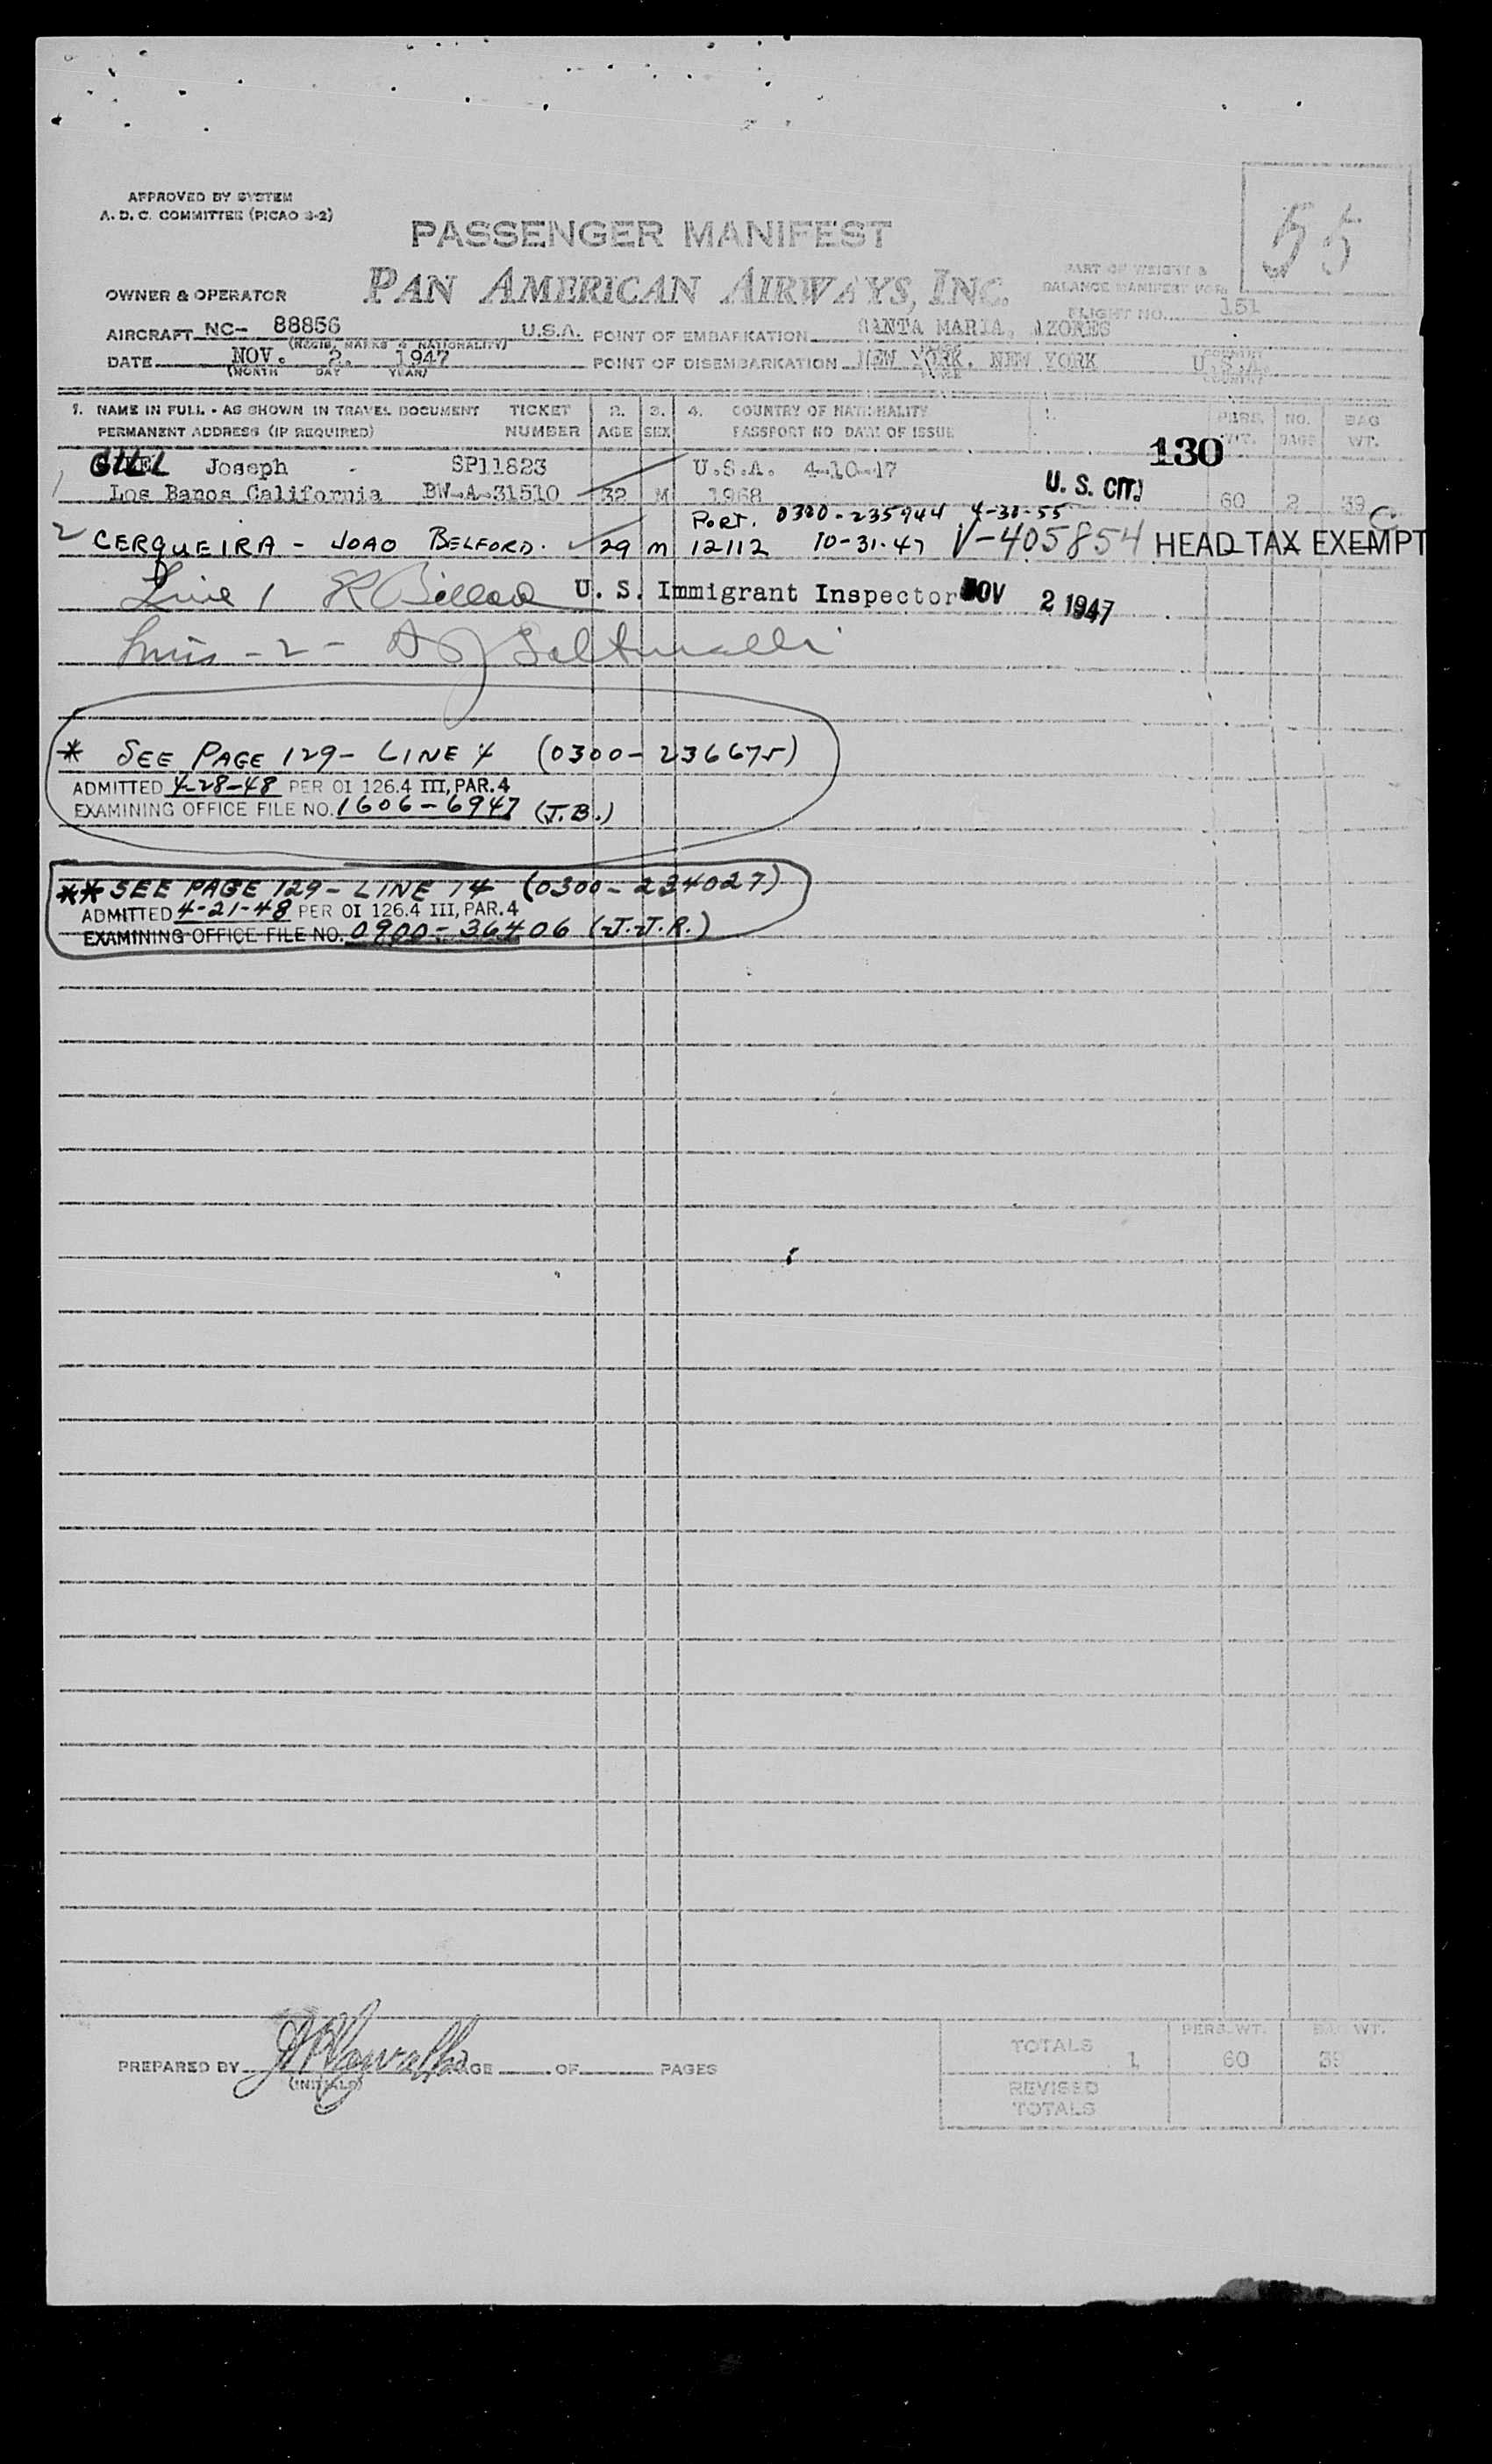 APPROVED BY SYSTEM
A. D. C. COMMITTEE (PICAO 3-2)
55
PASSENGER MANIFEST
PAN AMERICAN AIRWAYS, INC.
PART OF WEIGHT &
BALANCE MANIFEST FOR
OWNER & OPERATOR
FLIGHT NO. 151
AIRCRAFT NC- 88856 U.S.A. POINT OF EMBARKATION SANTA MARIA, AZORES
(REGIS. MARKS & NATIONALITY)
DATE NOV. 2. 1947 POINT OF DISEMBARKATION NEW YORK, NEW YORK U.S.A.
(MONTH DAY YEAR)
1. NAME IN FULL - AS SHOWN IN TRAVEL DOCUMENT TICKET 2. 3. 4. COUNTRY OF NATIONALITY PERS. NO. BAG
PERMANENT ADDRESS (IF REQUIRED) NUMBER AGE SEX PASSPORT NO DATE OF ISSUE WT. BAGS WT.
130
1 GILL Joseph SP11823 U.S.A. 4-10-47
Los Banos California BW-A-31510 32 M 1968 U. S. CIT. 60 2 39
Port. 0300-235944 4-30-55 C
2 CERQUEIRA - JOAO BELFORD. 29 M 12112 10-31-47 V-405854 HEAD TAX EXEMPT
Line 1 U. S. Immigrant Inspector NOV 2 1947
- 2 -
* SEE PAGE 129- LINE 4 (0300-236675)
ADMITTED 4-28-48 PER OI 126.4 III, PAR. 4
EXAMINING OFFICE FILE NO. 1606-6947 (J.B.)
** SEE PAGE 129- LINE 14 (0300-234027)
ADMITTED 4-21-48 PER OI 126.4 III, PAR. 4
EXAMINING OFFICE FILE NO. 0900-36406 (J.J.R.)
TOTALS 1 PERS. WT. 60 BAG WT. 39
PREPARED BY PAGE OF PAGES
(INITIALS)
REVISED
TOTALS